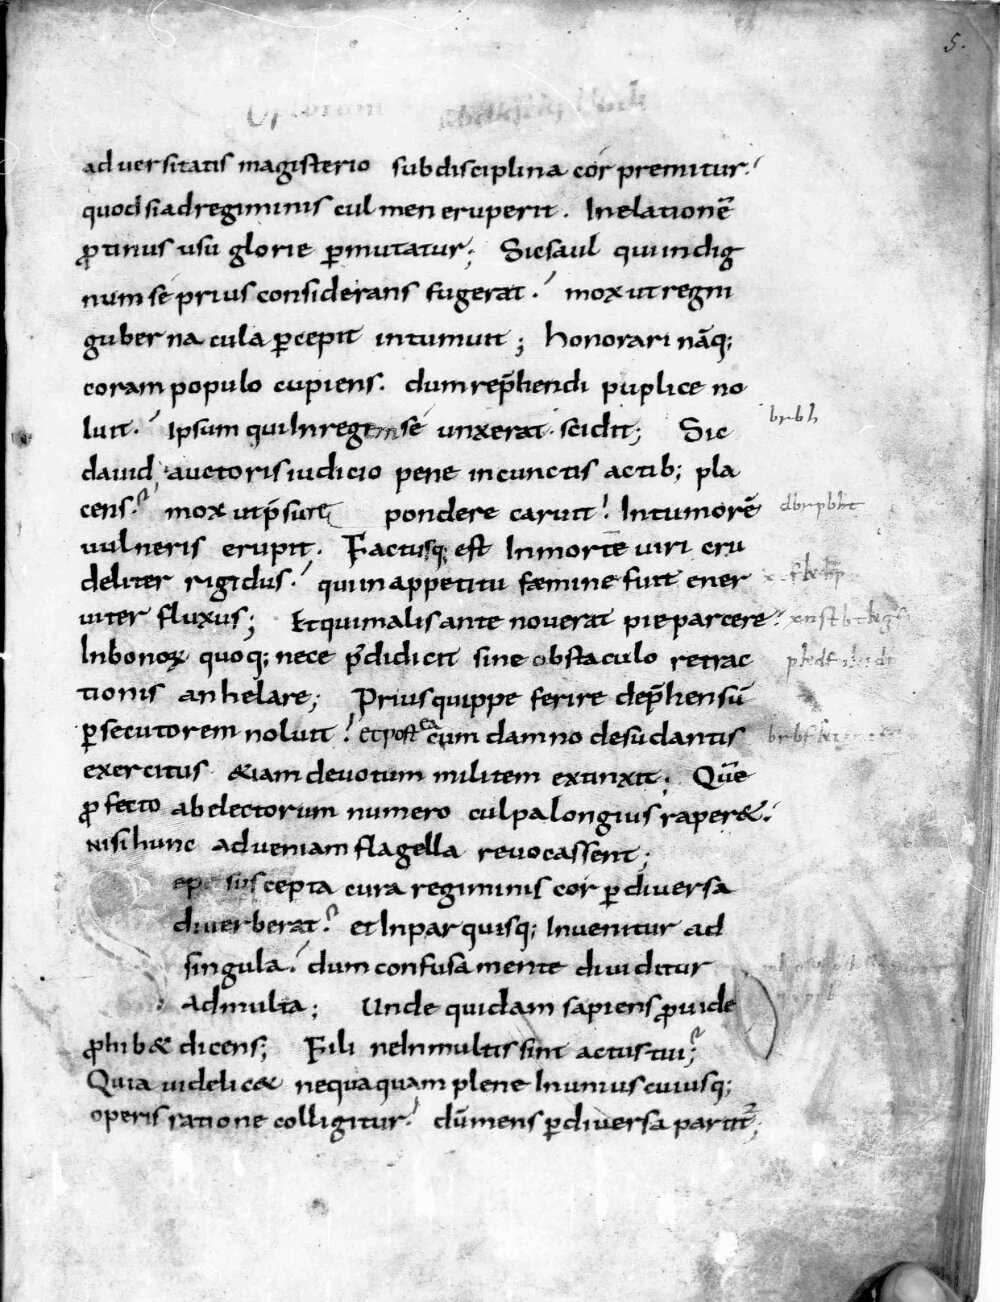 5.
adversitatis magisterio subdisciplina cor premitur.
quod siadregiminis culmen eruperit. Inelationē
ꝓtinus usu glorie ꝑmutatur; Sicsaul quiindig
num se prius considerans fugerat. mox utregni
gubernacula ꝑcepit intumuit; honorari nāq;
coram populo cupiens. dum rep̄hendi puplice no
luit. Ipsum quiInregem se unxerat scidit; Sic
brbh
david auctoris iudicio pene incunctis actib; pla
cens. mox utp̄sure pondere caruit. Intumorē
vulneris erupit. Factusq; est Inmortē viri cru
deliter rigidus. quiinappetitu fæmine fuit ener
viter fluxus; Etquimalis ante noverat pie parcere.
Inbonoꝝ quoq; nece p̄didicit sine obstaculo retrac
tionis anhelare; Prius quippe ferire dep̄hensū
ꝑsecutorem noluit. et post ea cum damno desudantis
exercitus &iam devotum militem extinxit; Quē
ꝓfecto abelectorum numero culpa longius raper&.
nisihunc adveniam flagella revocassent;
suscepta cura regiminis cor ꝑ diversa
diverberat. et Inpar quisq; Invenitur ad
singula. dum confusa mente dividitur
admulta; Unde quidam sapiens ꝓvide
ꝓhib& dicens; Fili neInmultis sint actus tui;
Quia videlic& nequaquam plene Inunius cuiusq;
operis ratione colligitur. dū mens ꝑdiversa partit᷑;